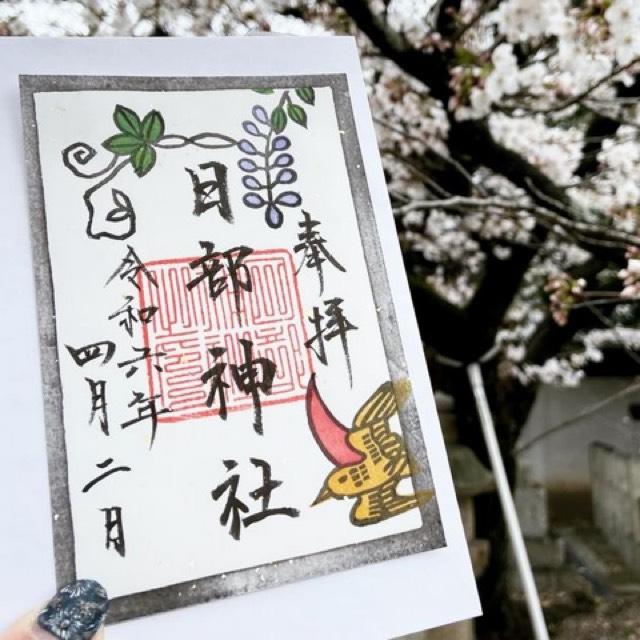 奉拝
日部神社
令和六年
四月二日